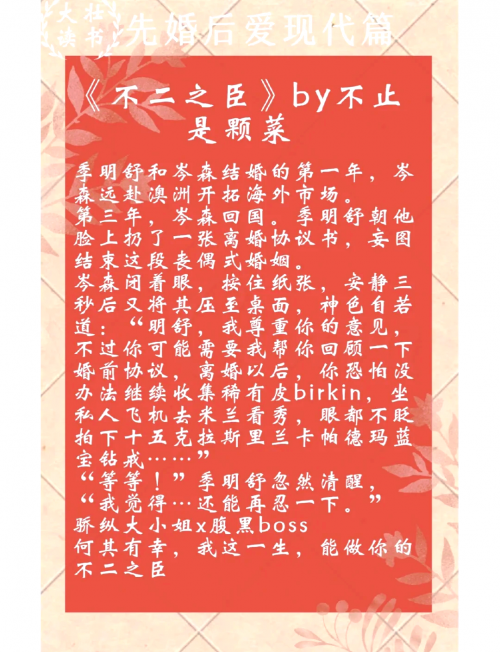 大壮
读书
先婚后爱现代篇
《不二之臣》by不止
是颗菜
季明舒和岑森结婚的第一年，岑
森远赴澳洲开拓海外市场。
第三年，岑森回国。季明舒朝他
脸上扔了一张离婚协议书，妄图
结束这段丧偶式婚姻。
岑森闭着眼，按住纸张，安静三
秒后又将其压至桌面，神色自若
道：“明舒，我尊重你的意见，
不过你可能需要我帮你回顾一下
婚前协议，离婚以后，你恐怕没
办法继续收集稀有皮birkin，坐
私人飞机去米兰看秀，眼都不眨
拍下十五克拉斯里兰卡帕德玛蓝
宝钻戒……”
“等等！”季明舒忽然清醒，
“我觉得…还能再忍一下。”
骄纵大小姐x腹黑boss
何其有幸，我这一生，能做你的
不二之臣